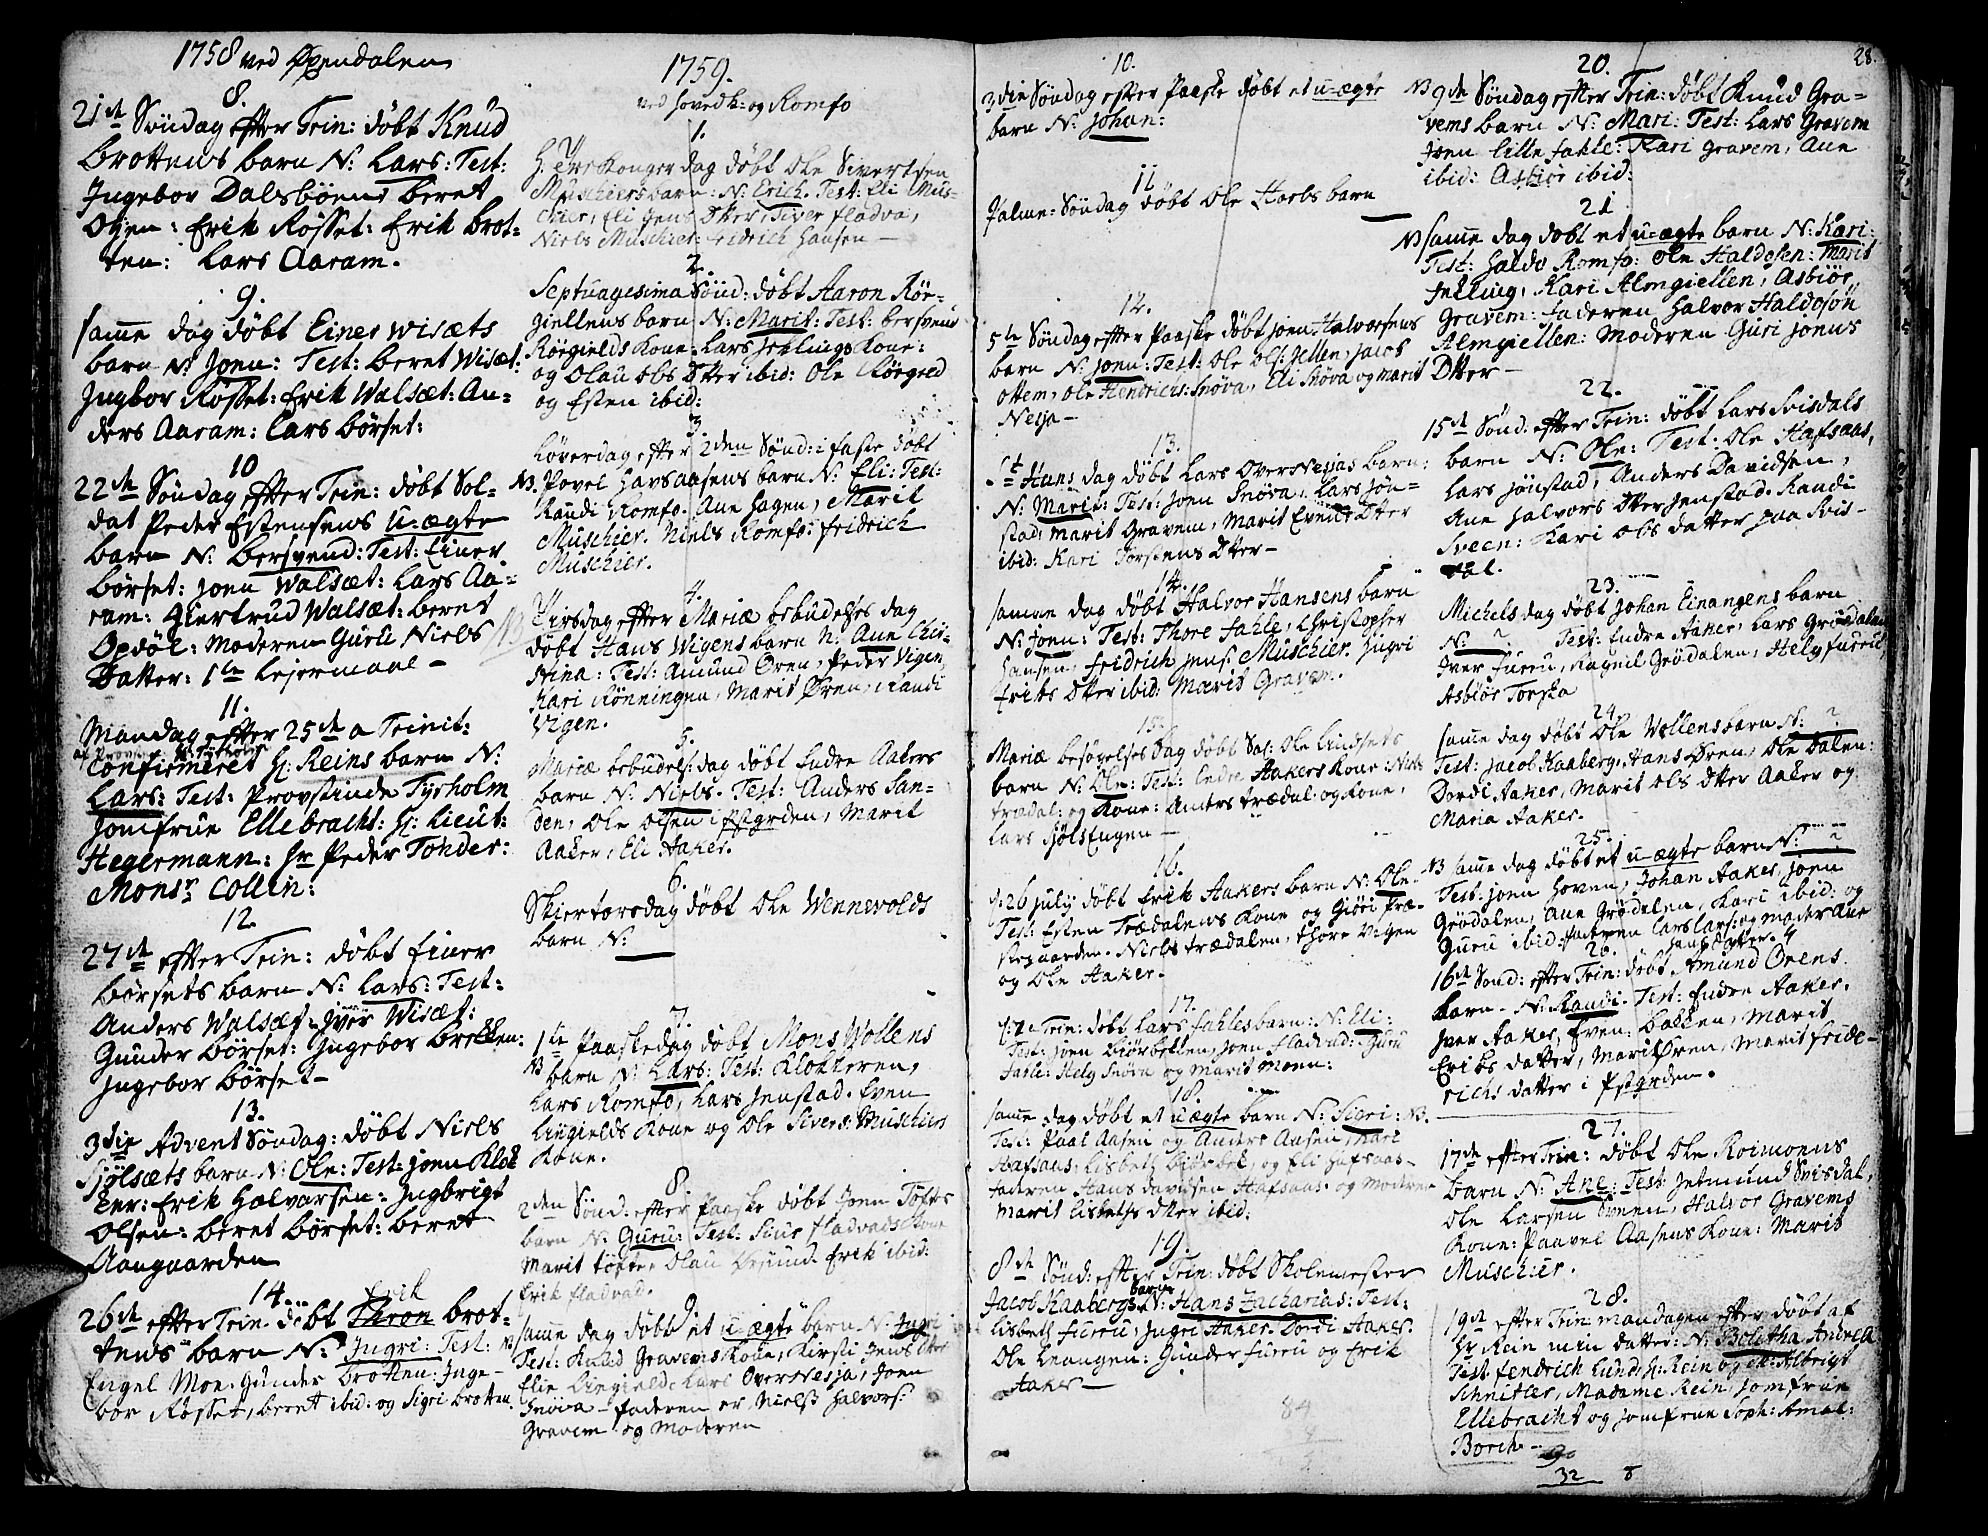 1758 ved Øxendalen
8.
21de Søndag efter Trin: døbt Knud
Brottens barn N: Lars: Test:
Ingebor Dalsbøen, Beret
Otjen: Erik Røsset: Erik Brot-
ten: Lars Aaram.
9.
samme dag døbt Einer Wisæts
barn N: Joen: Test: Beret Wisæt:
Ingbor Røsset: Erik Walsæt: An-
ders Aaram: Lars Børset:
10
22de Søndag efter Trin: døbt Sol-
dat Peder Estensens u-ægte
barn N: Bersvend: Test: Einer
Børset: Joen Walsæt: Lars Aa-
ram: Giertrud Walsæt: Beret
Opdøl: Moderen Gurli Niels
Datter: 1te Lejermaal –
11.
Mandag efter 25de a Trinit:
confirmeret Hr: Reins barn N:
Lars: Test: Provstinde Tyrholm
Jomfrue Ellebracht: Hr: Lieut:
Hegermann: Hr Peder Tonder:
Monsr Collin:
12.
27de efter Trin: døbt Einer
Børsets barn N: Lars: Test:
Anders Walsæt: Iver Wisæt:
Gunder Børset: Ingebor Brekken:
Ingebor Børset –
13.
3die Advent Søndag: døbt Niels
Sjølsæts barn N: Ole: Test: Joen Klok
ker: Erik Halvorsen: Ingbrigt
Olsen: Beret Børset: Beret
Aangaarden
14.
Erik
26de efter Trin. døbt Thron Brot-
tens barn N: Ingri: Test:
Engel Moe. Gunder Brotten: Inge-
bor Røsset, Beret ibid: og Sigri Brotten.
1759.
ved Hovedk: og Romfo
1.
H. Tre Konger dag døbt Ole Sivertsen
Muschiers barn: N: Erich. Test: Eli Mus-
chier, Eli Jens Dtter, Siver Fladva,
Niels Muschier: Fridrich Hansen –
2.
Septuagesima Sønd: døbt Aaron Rør-
giellens barn N: Marit: Test: Bersvend
Rørgields Kone. Lars Jeklings Kone:
og Olau Ols Dtter ibid: Ole Rørgied
og Esten ibid:
3
Løverdag efter 2den Sønd: i Faste døbt
NB. Povel Havsaasens barn N: Eli: Test:
Randi Romfo. Ane Hagen, Marit
Muschier. Niels Romfo: Fridrich
Muschier.
4.
Tirsdag efter Mariæ bebudelses dag
døbt Hans Wigens barn N: Ane Chir-
stina: Test: Amund Øren, Peder Vigen
Kari Rønningen, Marit Øren, Randi
Vigen.
5.
Mariæ bebudels: dag døbt Endre Aakers
barn N: Niels. Test: Anders San-
den, Ole Olsen i Pstgrden, Marit
Aaker, Eli Aaker.
6.
Skiertorsdag døbt Ole Wennevolds
barn N:
7.
1te Paaskedag døbt Mons Wollens
NB barn N: Lars: Test: Klokkeren,
Lars Romfo, Lars Jenstad. Even
Lingields Kone og Ole Sivers: Muschiers
Kone.
8.
2den Sønd: efter Paaske døbt Joen Toftes
barn N: Guru: Test: Siur Fladvads Kone
Marit Tofte, Olau Ørsund. Erik ibid:
Erik Fladvad.
9.
samme dag døbt et u-ægte barn N: Ingri
Test: Knud Gravems Kone, Kirsti Jens Dtter
Elin Lingield. Lars Overnesja, Joen
Snøva – faderen er Niels Halvors:
Gravem og Moderen
10.
3die Søndag efter Paaske døbt et u-ægte
barn N: Johan:
11
Palme-Søndag døbt Ole Horbs barn
12.
5te Søndag efter Paaske døbt Joen Halvorsens
barn N: Joen: Test: Ole Ols: Jellen, Jacob
Ottem, Ole Hendrichs: Snøva, Eli Snøva og Marit
Nesja –
13.
St Hans dag døbt Lars Overnesjas barn:
N: Marit: Test: Joen Snøva, Lars Jøn-
stad: Marit Gravem, Marit Evens Dtter
ibid: Kari Torstens Dtter –
14.
samme dag døbt Halvor Hansens barn
N: Joen: Test: Thore Fahle, Christopher
Hansen, Fridrich Jens: Muschier. Ingri
Eriks Dtter ibid: Marit Gravem.
15.
Mariæ besøgelses Dag døbt Sol: Ole Lindsets
barn N: Ole: Test: Endre Aakers Kone: Niels
Trædal: og Kone: Anders Trædal: og Kone,
Lars SjølsEngen –
16.
d: 26 July døbt Erik Aakers barn N: Ole.
Test: Esten Trædalens Kone og Giøri Præ-
stegaarden. Niels Trædalen, Thore Vigen
og Ole Aaker.
17.
Trin: døbt Lars Fahles barn: N: Eli:
Test: Joen Biørbekken, Joen Fladvad: Guru
Fahle: Hely Snøva og Marit Moen:
18.
samme dag døbt et u-ægte barn N: Sigri: NB.
Test: Paal Aasen og Anders Aasen, Kari
Hafsaas, Lisbeth Biørbek, og Eli Hafsaas –
faderen Hans Davidsen Hafsaas. og Moderen
Marit Lisbeths Dtter ibid:
19.
8de Sønd: efter Trin: døbt Skolemester
Jacob Kaabergs barn N: Hans Zacharius: Test:
Lisbeth Furru, Ingri Aaker. Dordi Aaker.
Ole Leangen: Gunder Furru og Erik
Aaker –
84
8
28.
20.
NB 9de Søndag efter Trin: døbt Knud Gra-
vems barn N: Mari: Test: Lars Gravem
Joen Lille Fahle: Kari Gravem, Ane
ibid: Asbiør ibid:
21
NB samme dag døbt et u-ægte barn N: Kari:
Test: Haldo Romfo: Ole Haldosen: Marit
Jekling, Kari Almgiellen, Asbiør
Gravem: Faderen Halvor Haldosøn
Almgiellen: Moderen Guri Joens
Dtter –
22.
15de Sønd: efter Trin: døbt Lars Svisdals
barn N: Ole: Test: Ole Hafsaas,
Lars Jønstad, Anders Davidsen,
Ane Halvors Dtter Jenstad. Randi
Sveen: Kari Ols datter paa Svis-
dal.
23.
Michels dag døbt Johan Einangens barn
N: ? Test: Endre Aaker, Lars Grødalen
Iver Furru, Ragnil Grødalen, Hely Furru
Asbiør Torske
24.
samme dag døbt Ole Wollens barn N: ?
Test: Jacob Kaaberg, Hans Øren, Ole Dalen:
Dordi Aaker, Marit Ols Dtter Aaker og
Maria Aaker.
25.
NB samme dag døbt et u-ægte barn N: ?
Test: Joen Hoven, Johan Aaker, Joen
Grødalen, Ane Grødalen, Kari ibid: og
Guru ibid: faderen Lars Lars: og moder Ane
Jens Dtter.
26.
16de Sønd: efter Trin: døbt Amund Ørens
barn – N: Randi. Test: Endre Aaker.
Iver Aaker, Even: Bakken, Marit
Eriks datter, Marit Øren, Marit Fride-
richs datter i Pstgrden.
27.
17de efter Trin: døbt Ole Roimoens
barn N: Ane: Test: Jetmund Svisdal,
Ole Larsen Sveen, Halvor Gravems
Kone: Paavel Aasens Kone: Marit
Muschier.
28.
19de efter Trin mandagen efter døbt af
Hr Rein min datter: N: Bolitha Andrea
Test Fendrich Lund, Hr: Rein og Albrigt
Schnitler, Madame Rein, Jomfrue
Ellebracht og Jomfrue Soph: Amal:
Borch –
32 8